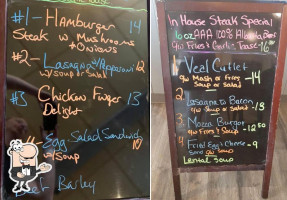 #1 - HAmburger 14
Steak w Mushrooms
+ Onions
#2 - Lasagna w/ Pepperoni 12
w/ soup or Salad
#3 Chicken Finger 13
Delight
Egg Salad Sandwich
w/ soup 10
Beef Barley
In House Steak Special
6oz AAA 100% Alberta Beef
w/ Fries & Garlic Toast - 16
1 Veal Cutlet
w/ Mash or Fries - 14
Soup or Salad
2 Lasagna w Bacon
w/ Soup or Salad - 13
3 Mozza Burger
w/ Fries & Soup - 12.50
4 Fried Egg & Cheese - 9
Sand w/ Soup
Lentil Soup